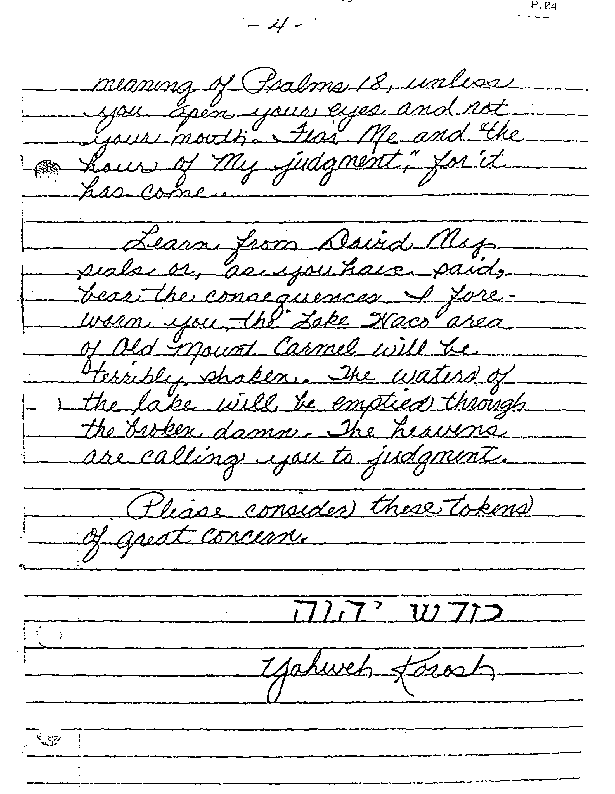 P.04
- 4 -
meaning of Psalms 18, unless
you open your eyes and not
your mouth. Fear Me and "the
hour of My judgment," for it
has come.
Learn from David My
seals or, as you have said,
bear the consequences. I fore-
warn you, the Lake Waco area
of Old Mount Carmel will be
terribly shaken. The waters of
the lake will be emptied through
the broken damn. The heavens
are calling you to judgment.
Please consider these tokens
of great concern.
כורש יהוה
Yahweh Koresh